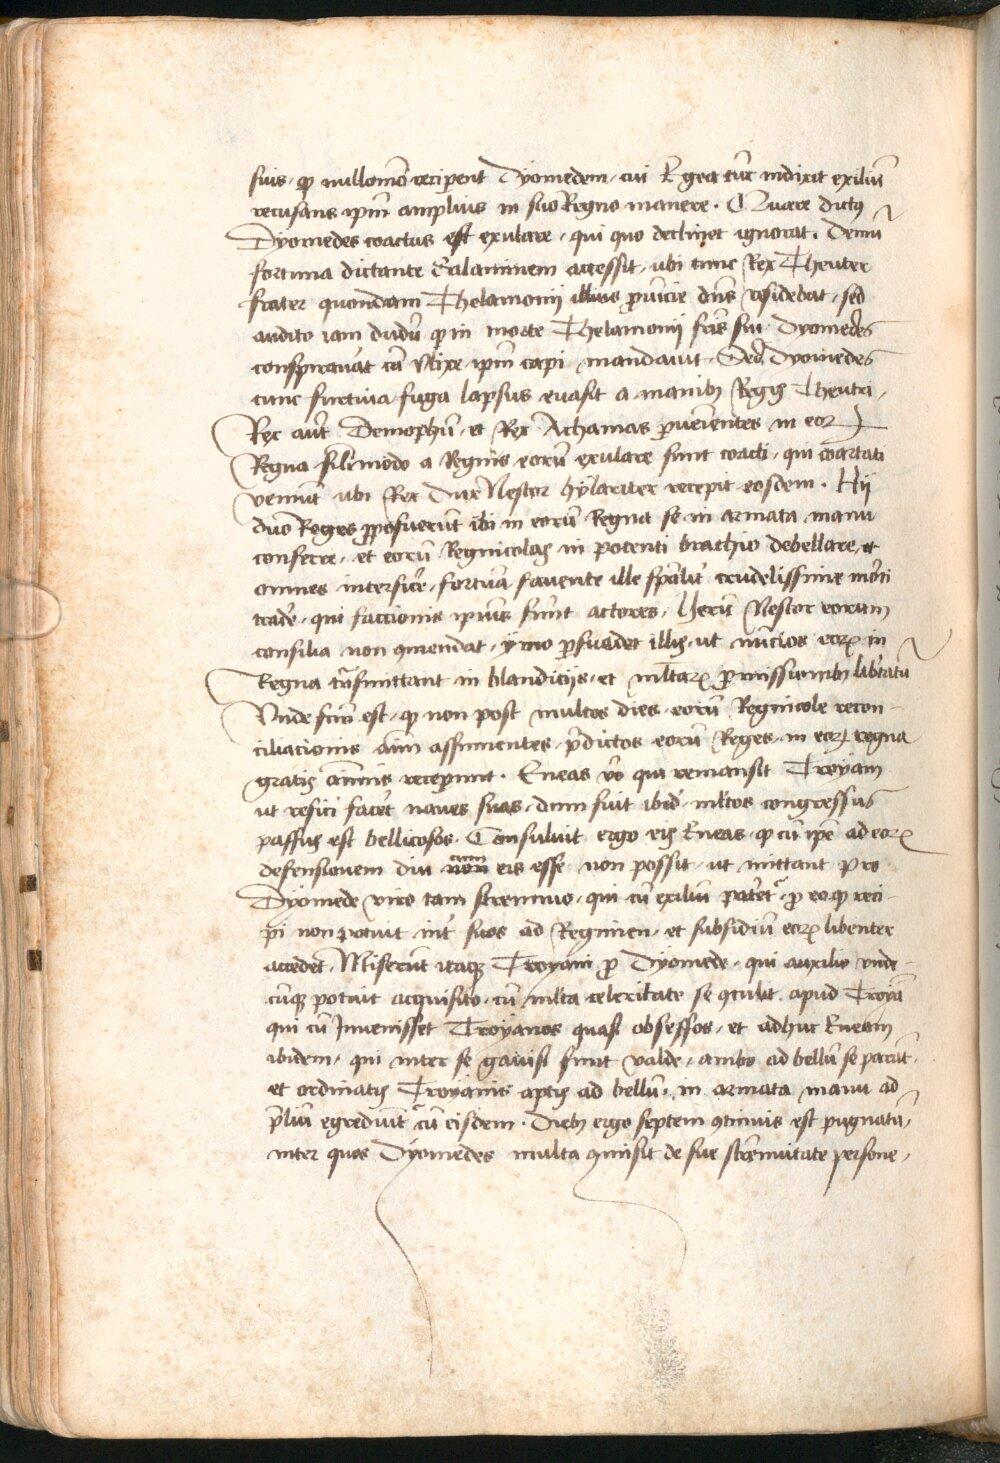 suis . qͥ nullomō recipent Dyomedem . cui Egea tūc indixit exiliū
recusans ipm̄ amplius in suo Regno manere . Quare dictꝰ
Dyomedes coactus est exulare . qui quo declinet ignorat . Demū
fortuna dictante Salaminem accessit . ubi tunc Rex Theuter
frater quondam Thelamonij illius ꝓuīcie dn̄s residebat . sed
audito iam dudū ꝙ in morte Thelamonij fr̄is sui Dyomedes
conspirauāt cū Vlixe ipm̄ capi mandauit . Sed Dyomedes
tunc furtiua fuga lapsus euasit a manibꝫ Regis Theutri .
Rex aūt Demophū et Rex Athamas ꝓuenientes in eoꝝ
Regna silī modo a Regnis eorū exulare sunt coacti . qui coartati
veniūt ubi Rex Dux Nestor hylariter recepit eosdem . Hij
duo Reges ꝓposuerūt ibi in eorū Regna se in armata manu
conferre . et eorū Regnicolas in potenti brachio debellare et
omnes interficere . fortuna fauente ille spālit crudelissime morti
trade . qui faccionis ipius fūnt actores . Verū Nestor eorum
consilia non ꝯmendat . ymo ꝑsuadet illis . ut nuncios eoꝝ in
Regna tn̄smittant in blandicijs . et mltaꝝ ꝓmissionibꝫ libertatū
Vnde fcm̄ est . ꝙ non post multos dies . eorū Regnicole recon-
ciliacionis aīm assumentes . p̄dictos eorū Reges . in eoꝝ regna
gratis aīmis receperunt . Eneas vō qui remansit Troyam
ut refici facēt naues suas . dum fuit ibid mltos congressus
passus est bellicosos . Consuluit ergo eis Eneas . ꝙ cū ipē ad eoꝝ
defensionem diu non cum eis esse non possit . ut mittant pro
Dyomede viro tam strennuo . qui cū exiliū patet̄ . ꝓ eo ꝙ reci-
pi non potuit int suos ad Regimen . et subsidiū eoꝝ libenter
accedet . Miserūt itaqꝫ Troyani ꝓ Dyomede . qui auxilio vnde-
cūqꝫ potuit acquisito . cū mlta celeritate se ꝯtulit apud Troyā
qui cū Inuenisset Troyanos quasi obsessos . et adhuc Eneam
ibidem . qui inter se gauisi sunt valde . ambo ad bellū se parāt .
et ordinatis Troyanis aptis ad bellū . in armata manu ad
p̄liū egrediūt̄ cū eisdem . Diebꝫ ergo septem ꝯtinuis est pugnatū .
inter quos Dyomedes multa ꝯmisit de sue strennuitate persone .